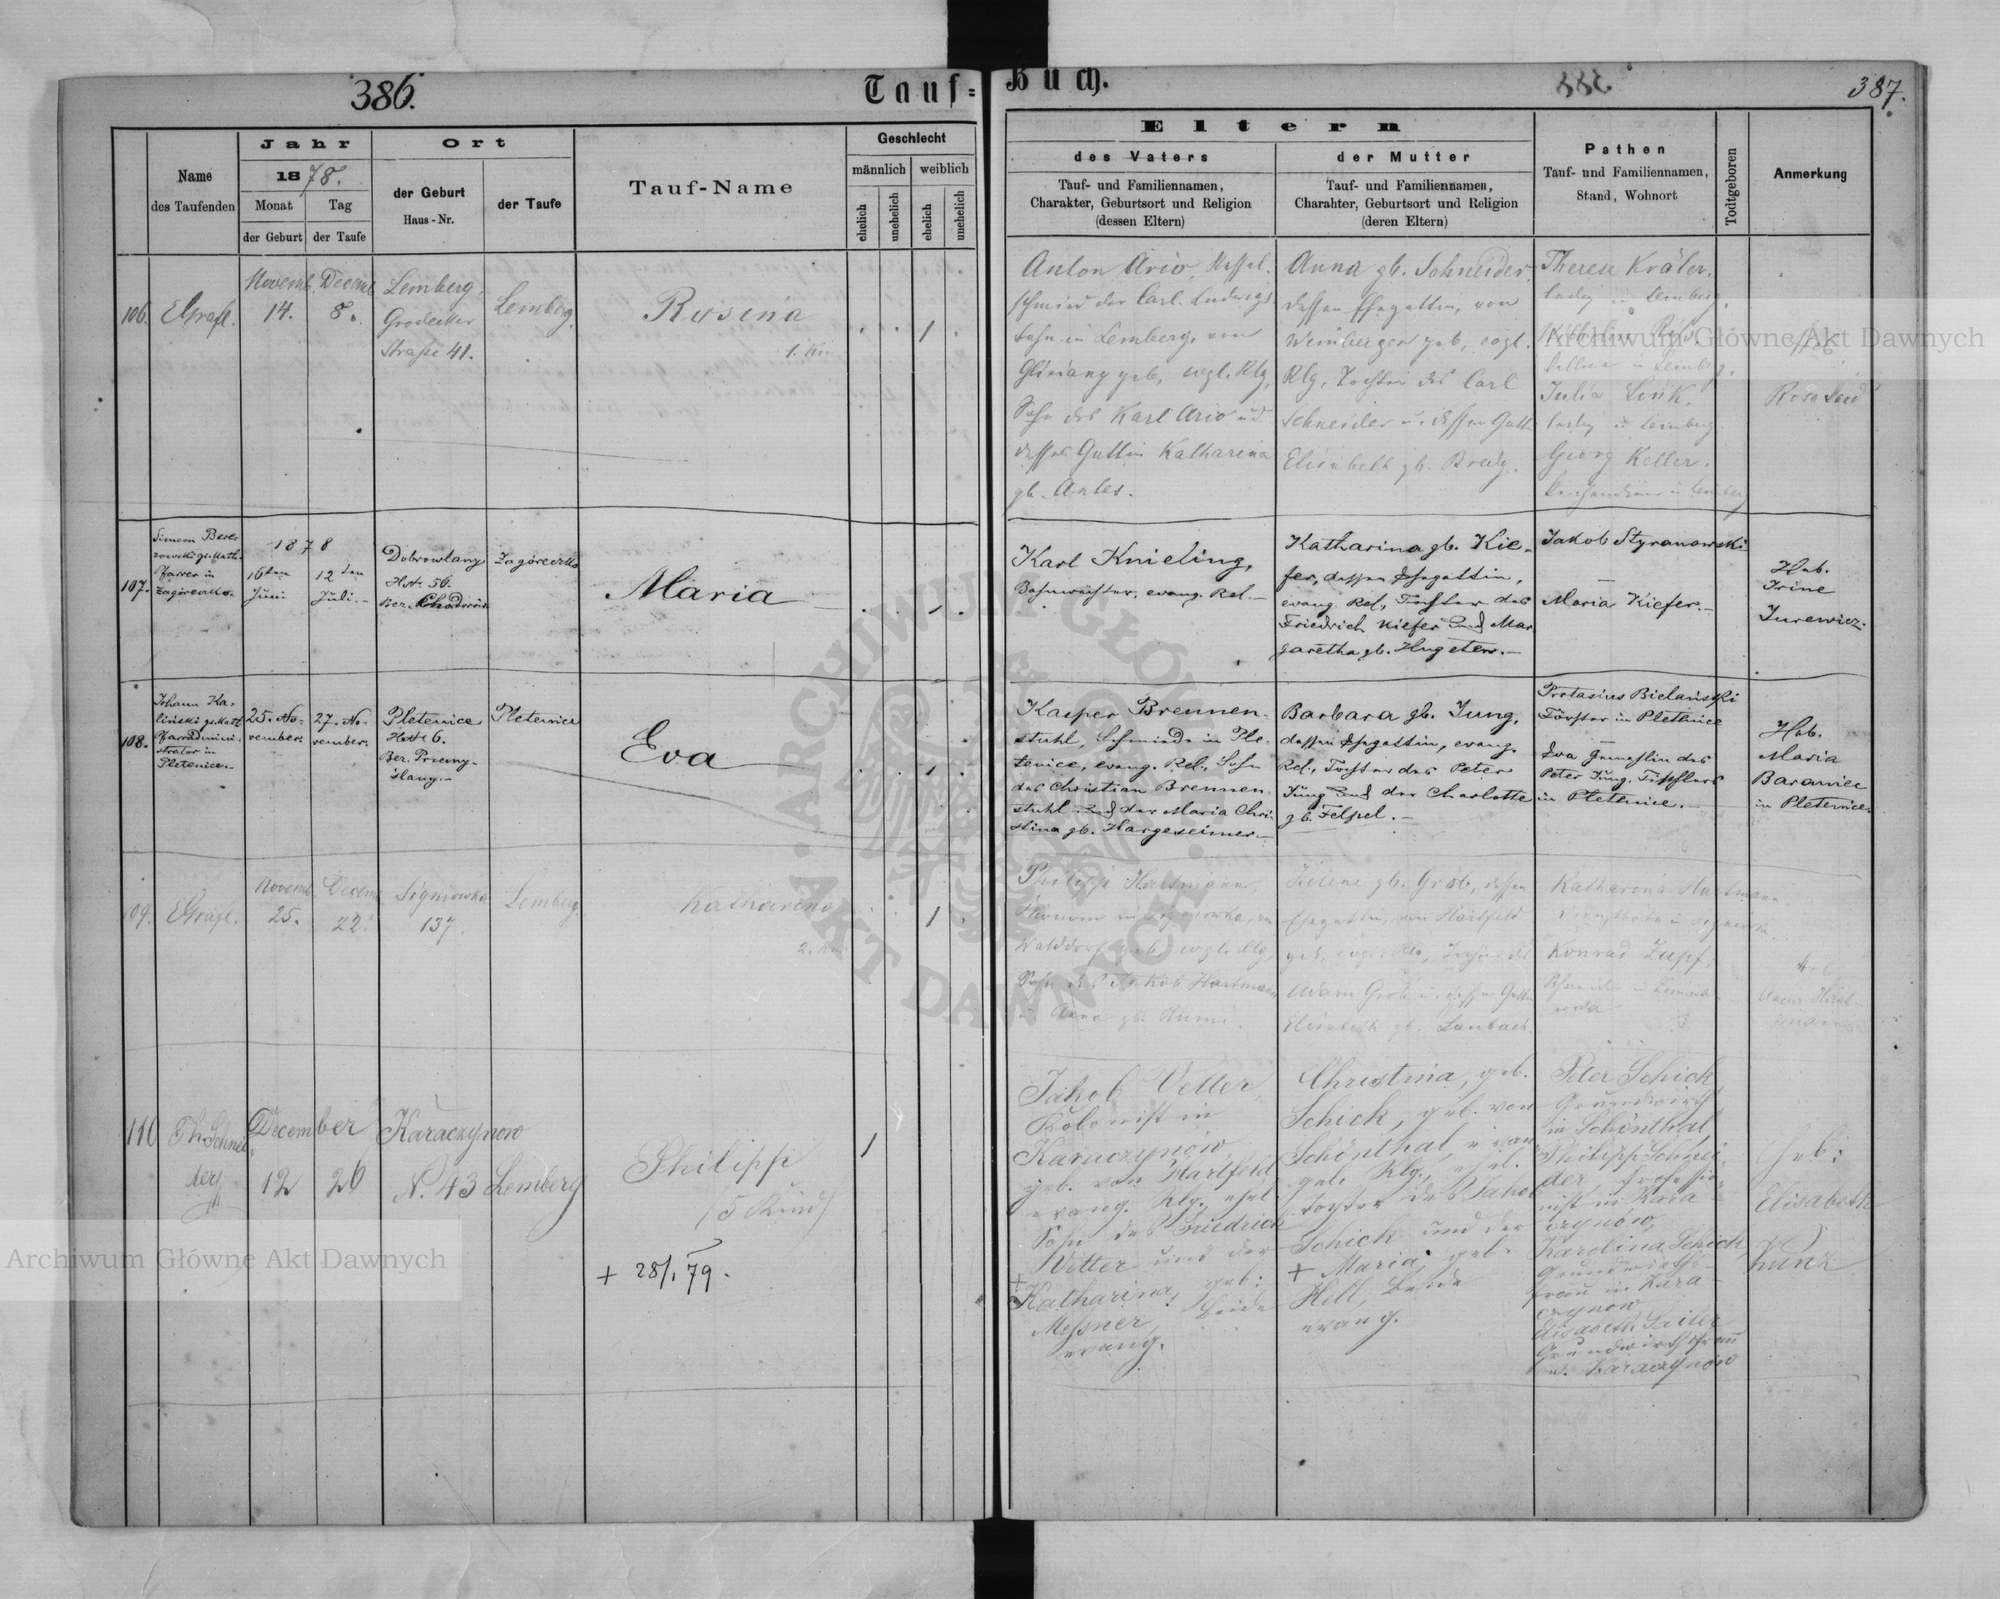 386.
Tauf=
Buch.
387.
Name
des Taufenden
Jahr
1878.
Monat
Tag
der Geburt
der Taufe
Ort
der Geburt
Haus-Nr.
der Taufe
Tauf-Name
Geschlecht
männlich
weiblich
ehelich
unehelich
ehelich
unehelich
Eltern
des Vaters
Tauf- und Familiennamen,
Charakter, Geburtsort und Religion
(dessen Eltern)
der Mutter
Tauf- und Familiennamen,
Charahter, Geburtsort und Religion
(deren Eltern)
Pathen
Tauf- und Familiennamen,
Stand, Wohnort
Todtgeboren
Anmerkung
106.
Novemb.
14.
Decemb
8.
Lemberg,
Grodecker
Straße 41.
Lemberg.
Rosina
Anton Ario, Kessel-
schmied der Carl Ludwigs
bahn in Lemberg, von
geb, evgl. Rlg,
Sohn des Karl Ario und
dessen Gattin Katharina
gb. Antes.
Anna gb. Schneider,
dessen Ehegattin, von
Weinbergen geb, evgl.
Rlg, Tochter des Carl
Schneider u. dessen Gattin
Elisabeth gb.
Therese Kräter,
ledig in Lemberg.
in Lemberg.
Julia Link,
ledig in Lemberg
Georg Keller,
in Lemberg
Heb.
Rosa
107.
Simeon Bere-
zowski gr. kath.
Pfarrer in
Zagóreczko.
1878
16ten
Juni
12ten
Juli.-
Dobrowlany
Hs№ 56.
Bez.
Zagóreczko
Maria
Karl Knieling,
Bahnwächter, evang. Rel.-
Katharina gb. Kie-
fer, dessen Ehegattin,
evang. Rel., Tochter des
Friedrich Kiefer und Mar-
garetha gb.
Jakob Styranowski
—
Maria Kiefer.-
Heb.
Irine
Jurewicz.
108.
Johann Ka-
liński gr. kath
Pfarradmini-
strator in
Pletenice.-
25. No-
vember.
27. No-
vember.
Pletenice
Hs№ 6.
Bez. Przemy-
ślany.-
Pletenice
Eva
Kasper Brennen-
stuhl, Schmiede in Ple-
tenice, evang. Rel., Sohn
des Christian Brennen-
stuhl und der Maria Chri-
stina gb. Hargeseimer.-
Barbara gb. Jung,
dessen Ehegattin, evang.
Rel., Tochter des Peter
Jung und der Charlotte
gb. Felpel.-
Protasius Bielański
Förster in Pletenice
Eva Gemahlin des
Peter Jung, Tischlers
in Pletenice.-
Heb.
Maria
Baraniec
in Pletenice.
109.
Novemb.
25.
Decemb
22.
Signiowka
137.
Lemberg.
Katharina
2. Kin
Philipp Hartmann,
Ökonom in Signiowka, von
Walddorf geb, evgl. Rlg,
Sohn des Jakob Hartmann
u. Anna gb.
Helene gb. Grob, dessen
Ehegattin, von Hartfeld
geb, evgl. Rlg, Tochter des
Adam Grob u. dessen Gattin
Elisabeth gb. Laubach.
Katharina Hartmann,
Konrad Zapf,
Heb.
110
Th Schnei-
der
December
12
26
Karaczynow
N. 43
Lemberg
Philipp
(5 Kind)
+ 28/1 79.
Jakob Vetter,
Kolonist in
Karaczynów,
geb. von Hartfeld
evang. Rlg, ehel.
Sohn des Friedrich
Vetter und der
+ Katharina, geb:
Messner, beide
evang.
Christina, geb.
Schick, geb. von
Schönthal, evan
gel. Rlg., ehel.
Tochter des Jakob
Schick und der
+ Maria, geb.
Hell, beide
evang.
Peter Schick,
Grundwirth
in Schönthal
Philipp Schnei-
der, Professio-
nist in Kara
czynów,
Karolina Schick
Grundwirths-
frau in Kara
czynow
Elisabeth Seiler
Grundwirthsfrau
in Karaczynów
Heb:
Elisabeth
Kunz
Archiwum Główne Akt Dawnych
Archiwum Główne Akt Dawnych
ARCHIWUM GŁÓWNE AKT DAWNYCH